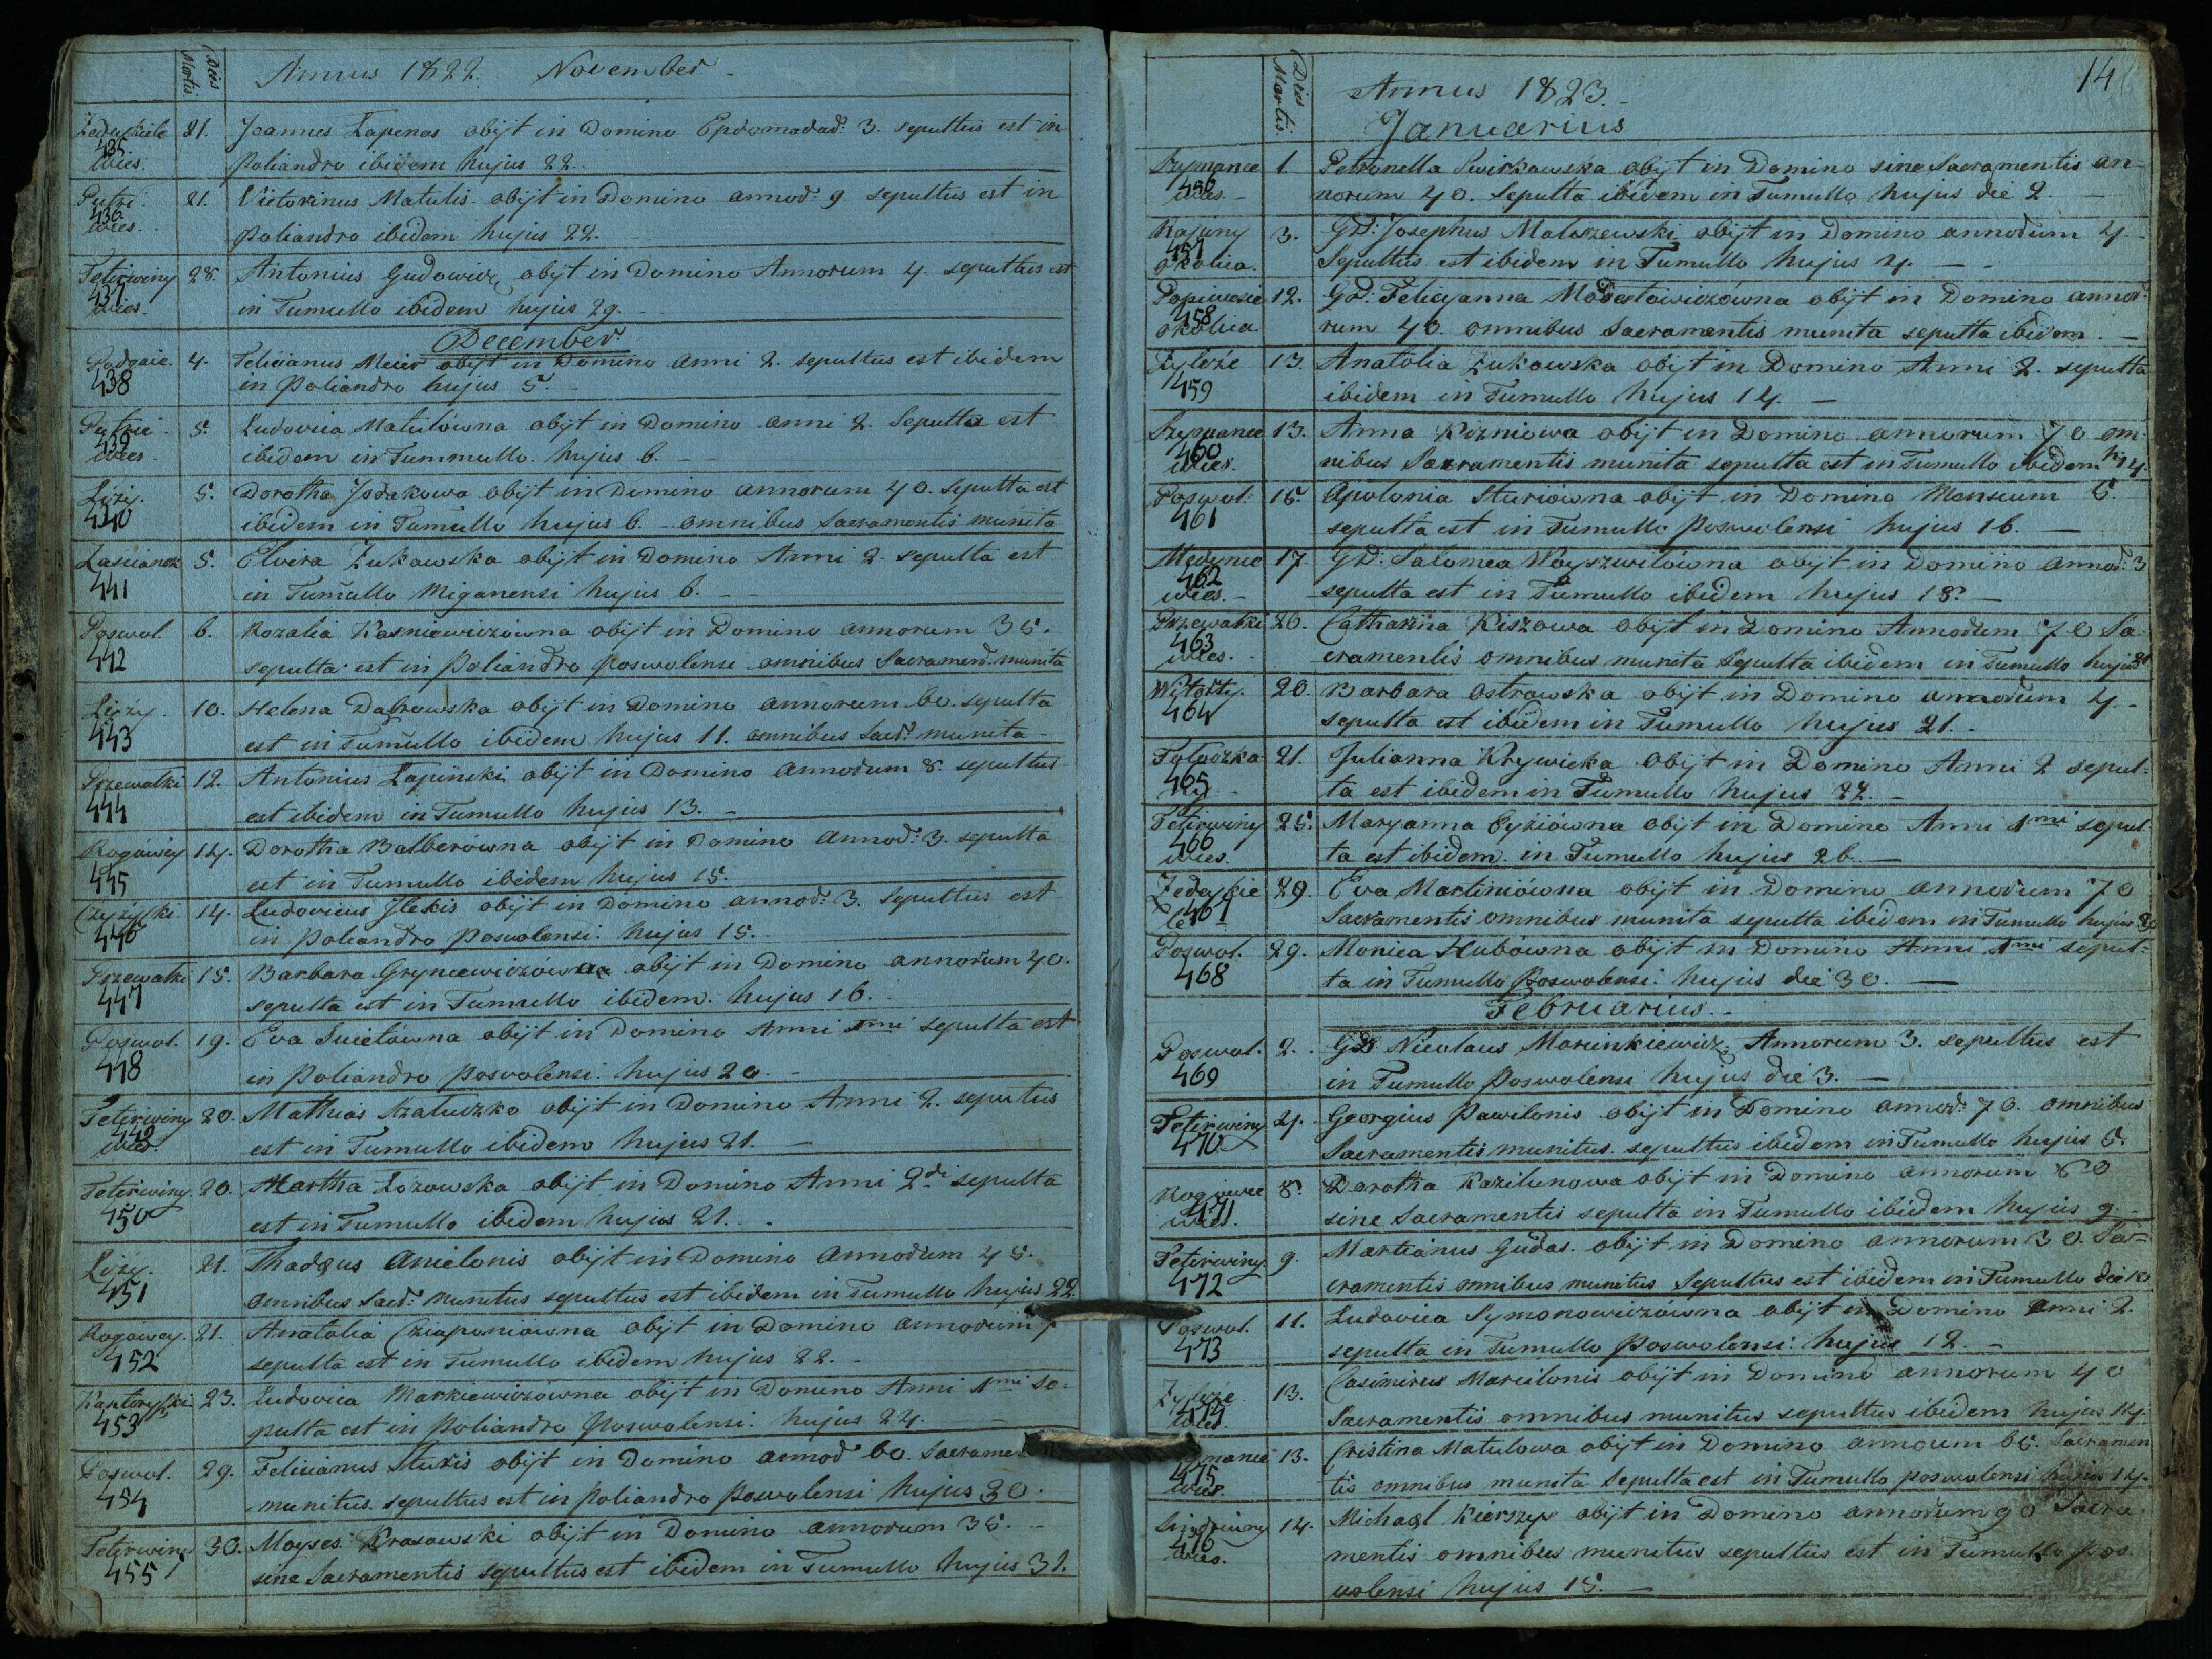 Dies Mortis.
Annus 1822. November
435 wies. 21. Joannes Łapenas obijt in Domino Epdomadar: 3. sepultus est in
Poliandro ibidem hujus 22.
436 wies. 21. Victorinus Matulis obijt in Domino annor: 9 sepultus est in
poliandro ibidem hujus 22.
Tetirwiny 437 wies. 28. Antonius Gudowicz obijt in Domino Annorum 4. sepultus est
in Tumullo ibidem hujus 29.
December
Podgaie. 438 4. Felicianus Meier obijt in Domino anni 2. sepultus est ibidem
in Poliandro hujus 5.
439 wies 5. Ludovica Matulówna obijt in Domino anni 2. Sepulta est
ibidem in Tummullo. hujus 6.
Liży. 440 5. Dorotha Jodakowa obijt in Domino annorum 40. sepulta est
ibidem in Tumullo hujus 6. omnibus Sacramentis munita
Łascianok 441 5. Elvira Zukawska obijt in Domino Anni 2. sepulta est
in Tumullo Miganensi hujus 6.
Poswol. 442 6. Rozalia Kasniewiczówna obijt in Domino annorum 35.
sepulta est in poliandro poswolensi omnibus Sacramen. munita
Liży. 443 10. Helena Dabrowska obijt in Domino annorum 60. sepulta
est in Tumullo ibidem hujus 11. omnibus Sacr: munita
Przewalki 444 12. Antonius Łapinski obijt in Domino Annorum 8. sepultus
est ibidem in Tumullo hujus 13.
Rogówey 445 14. Dorotha Balberówna obijt in Domino annor: 3. sepulta
est in Tumullo ibidem hujus 15.
446 14. Ludovicus Jlekis obijt in Domino annor: 3. sepultus est
in poliandro poswolensi. hujus 15.
Przewalki 447 15. Barbara Gryncewiczówna obijt in Domino annorum 40.
sepulta est in Tumullo ibidem. hujus 16.
Poswol. 448 19. Eva Swietówna obijt in Domino Anni 1mi sepulta est
in poliandro poswolensi hujus 20.
Tetirwiny 449 wies. 20. Mathias Szatuszko obijt in Domino Anni 2. sepultus
est in Tumullo ibidem hujus 21.
Tetirwiny. 450 20. Martha Lozowska obijt in Domino Anni 2di sepulta
est in Tumullo ibidem hujus 21.
Liży. 451 21. Thadeus Anielonis obijt in Domino Annorum 45.
Omnibus Sacr: munitus sepultus est ibidem in Tumullo hujus 22.
Rogówey. 452 21. Anatolia Cziaponiówna obijt in Domino annorum
sepulta est in Tumullo ibidem hujus 22.
453 23. Ludovica Markiewiczówna obijt in Domino Anni 1mi se-
pulta est in poliandro poswolensi. hujus 24.
Poswol. 454 29. Felicianus Sturis obijt in Domino annor 60. Sacrame
munitus sepultus est in poliandro powolensi hujus 30.
Tetirwiny 455 30. Moyses Krasowski obijt in Domino annorum 35.
sine Sacramentis sepultus est ibidem in Tumullo hujus 31.
14
Dies Mortis.
Annus 1823.
Januarius
456 wies. 1. Petronella Swirkowska obijt in Domino sine Sacramentis an-
norum 40. Sepulta ibidem in Tumullo hujus die 2.
Rajuny 457 okolica. 3. GD: Josephus Maluszewski obijt in Domino annorum 4.
Sepultus est ibidem in Tumullo hujus 4.
458 okolica. 12. GD: Felicyanna Modestowiczówna obijt in Domino anno-
rum 40. omnibus Sacramentis munita sepulta ibidem.
459 13. Anatolia Zukowska obijt in Domino Anni 2. sepulta
ibidem in Tumullo hujus 14.
460 wies. 13. Anna Kizniowa obijt in Domino annorum 70 om-
nibus Sacramentis munita sepulta est in Tumullo ibidem h. 14.
Poswol: 461 15. Apolonia Sturiówna obijt in Domino Mensium 6.
sepulta est in Tumullo poswolensi hujus 16.
462 wies. 17 GD: Salomea Woyszwilówna obijt in Domino annor: 3
sepulta est in Tumullo ibidem hujus 18.
Przewalki 463 wies. 20. Catharina Kiszowa obijt in Domino Annorum 70 Sa-
cramentis omnibus munita Sepulta ibidem in Tumullo hujus 21.
464 20. Barbara Ostrowska obijt in Domino annorum 4.
sepulta est ibidem in Tumullo hujus 21.
465 21. Julianna Krywicka obijt in Domino Anni 2 sepul-
ta est ibidem in Tumullo hujus 22.
Tetirwiny 466 wies. 25. Maryanna Cyziówna obijt in Domino Anni 1mi sepul-
ta est ibidem. in Tumullo hujus 26.
467 29. Eva Martiniówna obijt in Domino annorum 70
Sacramentis omnibus munita sepulta ibidem in Tumullo hujus 30
Poswol. 468 29. Monica Hubówna obijt in Domino Anni 1mi sepul-
ta in Tumullo Poswolensi. hujus die 30.
Februarius.
Poswol. 469 2. GD Nicolaus Marcinkiewicz. Annorum 3. sepultus est
in Tumullo Poswolensi hujus die 3.
Tetirwiny 470 4. Georgius Pawilonis obijt in Domino annor: 70. omnibus
Sacramentis munitus. sepultus ibidem in Tumullo hujus 5.
471 wies. 8. Dorotha Kazilunowa obijt in Domino annorum 80
sine Sacramentis sepulta in Tumullo ibidem hujus 9.
Tetirwiny. 472 9. Martianus Gudas. obijt in Domino annorum 30. Sa-
cramentis omnibus munitus Sepultus est ibidem in Tumullo die 10
Poswol. 473 11. Ludovica Symonowiczówna obijt in Domino anni 2.
sepulta in Tumullo Poswolensi: hujus 12.
474 wies. 13. Casimirus Marcilonis obijt in Domino annorum 40
Sacramentis omnibus munitus sepultus ibidem hujus 14.
475 wies. 13. Cristina Matulowa obijt in Domino annorum 65. Sacramen
tis omnibus munita Sepulta est in Tumullo poswolensi hujus 14.
476 wies. 14. Michael Kierszys obijt in Domino annorum 90 Sacra-
mentis omnibus munitus sepultus est in Tumullo pos-
wolensi hujus 15.